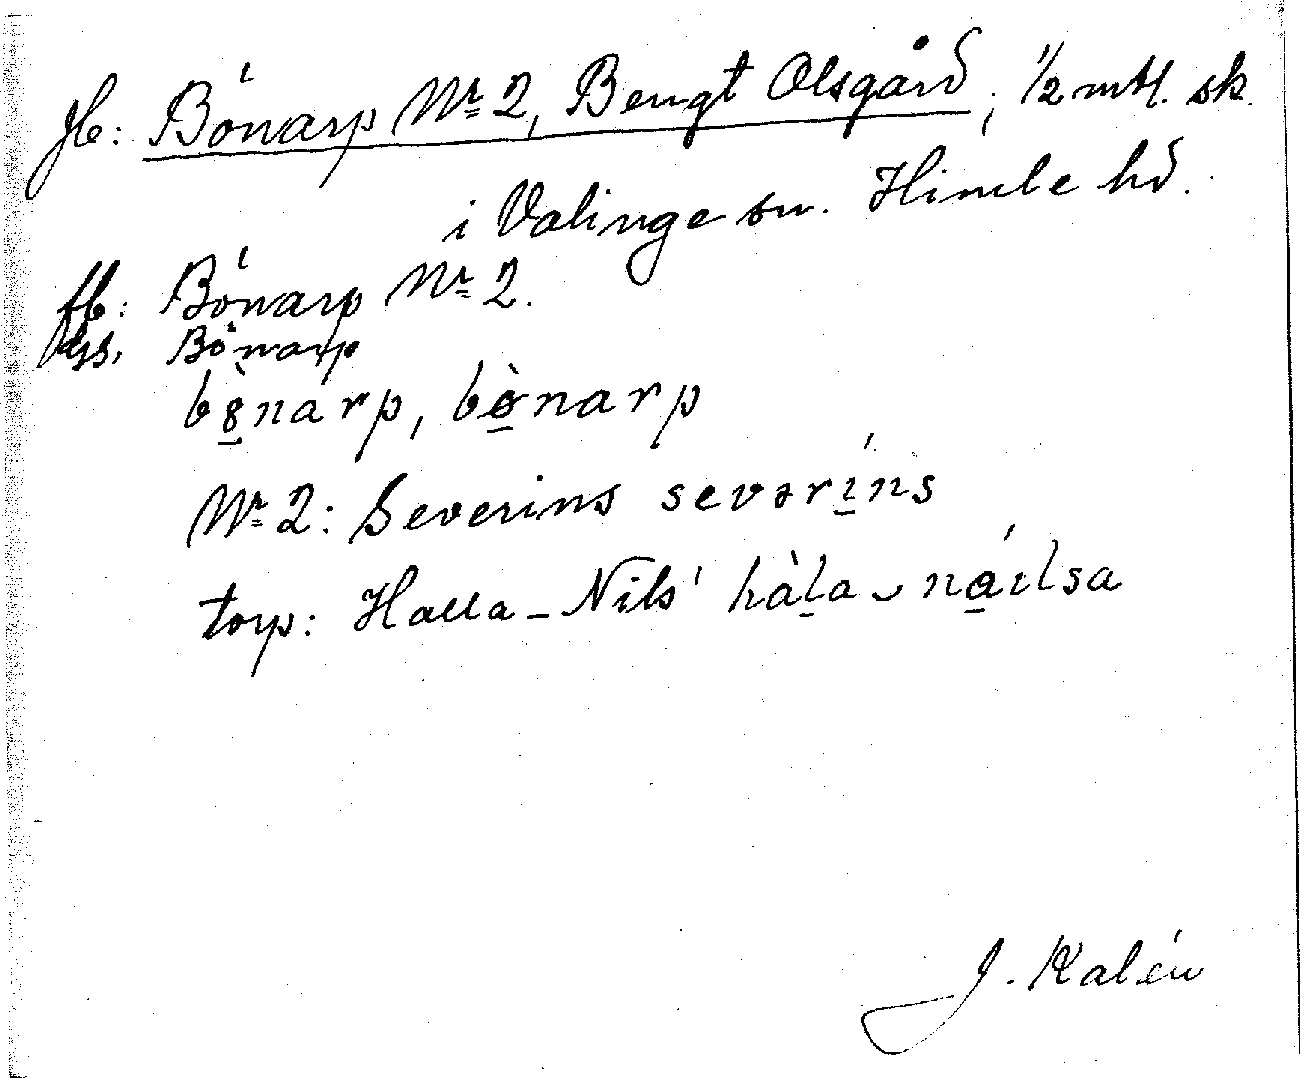 Jb: Bönarp Nr 2, Bengt Olsgård; 1/2 mtl. sk.
i Valinge sn. Himle hd.
fb: Bönarp Nr 2.
Bönarp
bo̱nàrp, bø̱̀narp
Nr 2: Severins sevərí̱ns
torp: Halla-Nils' hàḻa‿ná̱ılsa
J. Kalén